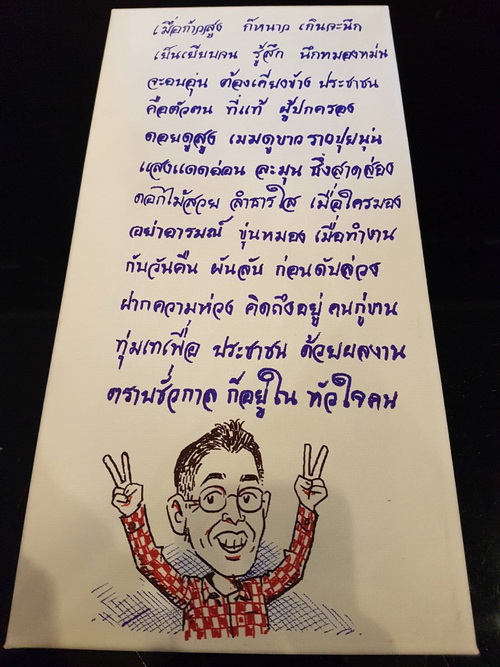 เมื่อก้าวสูง ก็หนาว เกินจะนึก
เย็นเยียบจน รู้สึก นึกหมองหม่น
จะอบอุ่น ต้องเคียงข้าง ประชาชน
คือตัวตน ที่แท้ ผู้ปกครอง
ดอยดูสูง เมฆดูขาว ราวปุยนุ่น
แสงแดดอ่อน ละมุน ซึ่งสาดส่อง
ดอกไม้สวย ลำธารใส เมื่อใครมอง
อย่าอารมณ์ ขุ่นหมอง เมื่อทำงาน
กับวันคืน ผันลับ ก่อนดับล่วง
ฝากความห่วง คิดถึงอยู่ คนกู่ขาน
ทุ่มเทเพื่อ ประชาชน ด้วยผลงาน
ตราบชั่วกาล ก็อยู่ใน หัวใจคน